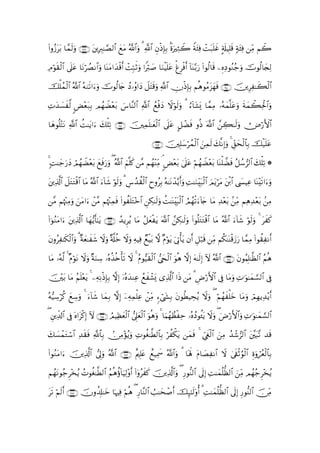 ﻛﻢ ﻣﻦ ﻓﺌﺔ ﻗﻠﻴﻠﺔ ﻏﻠﺒﺖ ﻓﺌﺔ ﻛﺜﻴﺮﺓ ﺑﺈﺫﻥ ﺍﻟﻠﻪ ﻭﺍﻟﻠﻪ ﻣﻊ ﺍﻟﺼﺎﺑﺮﻳﻦ (٢٤٩) ﻭﻟﻤﺎ ﺑﺮﺯﻭﺍ
لِجَالُوتَ وَجُنُودِهِ قَالُوا رَبَّنَا أَفْرِغْ عَلَيْنَا صَبْرًا وَثَبِّتْ أَقْدَامَنَا وَانْصُرْنَا عَلَى الْقَوْمِ
الْكَافِرِينَ (٢٥٠) فَهَزَمُوهُمْ بِإِذْنِ اللَّهِ وَقَتَلَ دَاوُودُ جَالُوتَ وَآتَاهُ اللَّهُ الْمُلْكَ
وَالْحِكْمَةَ وَعَلَّمَهُ مِمَّا يَشَاءُ وَلَوْلَا دَفْعُ اللَّهِ النَّاسَ بَعْضَهُمْ بِبَعْضٍ لَفَسَدَتِ
الْأَرْضُ وَلَكِنَّ اللَّهَ ذُو فَضْلٍ عَلَى الْعَالَمِينَ (٢٥١) تِلْكَ آيَاتُ اللَّهِ نَتْلُوهَا
عَلَيْكَ بِالْحَقِّ وَإِنَّكَ لَمِنَ الْمُرْسَلِينَ (٢٥٢)
تِلْكَ الرُّسُلُ فَضَّلْنَا بَعْضَهُمْ عَلَى بَعْضٍ مِنْهُمْ مَنْ كَلَّمَ اللَّهُ وَرَفَعَ بَعْضَهُمْ دَرَجَاتٍ
وَآتَيْنَا عِيسَى ابْنَ مَرْيَمَ الْبَيِّنَاتِ وَأَيَّدْنَاهُ بِرُوحِ الْقُدُسِ وَلَوْ شَاءَ اللَّهُ مَا اقْتَتَلَ الَّذِينَ
مِنْ بَعْدِهِمْ مِنْ بَعْدِ مَا جَاءَتْهُمُ الْبَيِّنَاتُ وَلَكِنِ اخْتَلَفُوا فَمِنْهُمْ مَنْ آمَنَ وَمِنْهُمْ مَنْ
كَفَرَ وَلَوْ شَاءَ اللَّهُ مَا اقْتَتَلُوا وَلَكِنَّ اللَّهَ يَفْعَلُ مَا يُرِيدُ (٢٥٣) يَا أَيُّهَا الَّذِينَ آمَنُوا
أَنْفِقُوا مِمَّا رَزَقْنَاكُمْ مِنْ قَبْلِ أَنْ يَأْتِيَ يَوْمٌ لَا بَيْعٌ فِيهِ وَلَا خُلَّةٌ وَلَا شَفَاعَةٌ وَالْكَافِرُونَ
هُمُ الظَّالِمُونَ (٢٥٤) اللَّهُ لَا إِلَهَ إِلَّا هُوَ الْحَيُّ الْقَيُّومُ لَا تَأْخُذُهُ سِنَةٌ وَلَا نَوْمٌ لَهُ مَا
فِي السَّمَاوَاتِ وَمَا فِي الْأَرْضِ مَنْ ذَا الَّذِي يَشْفَعُ عِنْدَهُ إِلَّا بِإِذْنِهِ يَعْلَمُ مَا بَيْنَ
أَيْدِيهِمْ وَمَا خَلْفَهُمْ وَلَا يُحِيطُونَ بِشَيْءٍ مِنْ عِلْمِهِ إِلَّا بِمَا شَاءَ وَسِعَ كُرْسِيُّهُ
السَّمَاوَاتِ وَالْأَرْضَ وَلَا يَئُودُهُ حِفْظُهُمَا وَهُوَ الْعَلِيُّ الْعَظِيمُ (٢٥٥) لَا إِكْرَاهَ فِي الدِّينِ
قَدْ تَبَيَّنَ الرُّشْدُ مِنَ الْغَيِّ فَمَنْ يَكْفُرْ بِالطَّاغُوتِ وَيُؤْمِنْ بِاللَّهِ فَقَدِ اسْتَمْسَكَ
بِالْعُرْوَةِ الْوُثْقَى لَا انْفِصَامَ لَهَا وَاللَّهُ سَمِيعٌ عَلِيمٌ (٢٥٦) اللَّهُ وَلِيُّ الَّذِينَ آمَنُوا
يُخْرِجُهُمْ مِنَ الظُّلُمَاتِ إِلَى النُّورِ وَالَّذِينَ كَفَرُوا أَوْلِيَاؤُهُمُ الطَّاغُوتُ يُخْرِجُونَهُمْ
مِنَ النُّورِ إِلَى الظُّلُمَاتِ أُولَئِكَ أَصْحَابُ النَّارِ هُمْ فِيهَا خَالِدُونَ (٢٥٧) أَلَمْ تَرَ